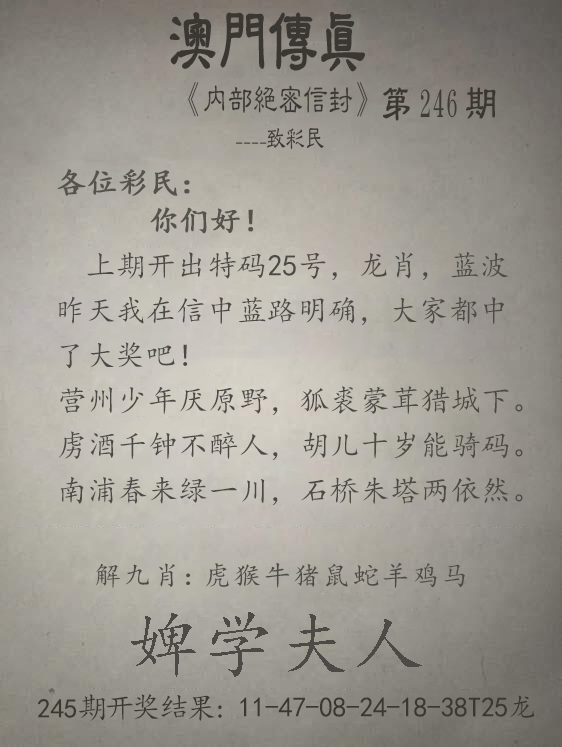 澳門傳眞
《内部絕密信封》第 246 期
----致彩民
各位彩民：
你们好！
上期开出特码25号，龙肖，蓝波
昨天我在信中蓝路明确，大家都中
了大奖吧！
营州少年厌原野，狐裘蒙茸猎城下。
虏酒千钟不醉人，胡儿十岁能骑码。
南浦春来绿一川，石桥朱塔两依然。
解九肖：虎猴牛猪鼠蛇羊鸡马
婢学夫人
245期开奖结果：11-47-08-24-18-38T25龙